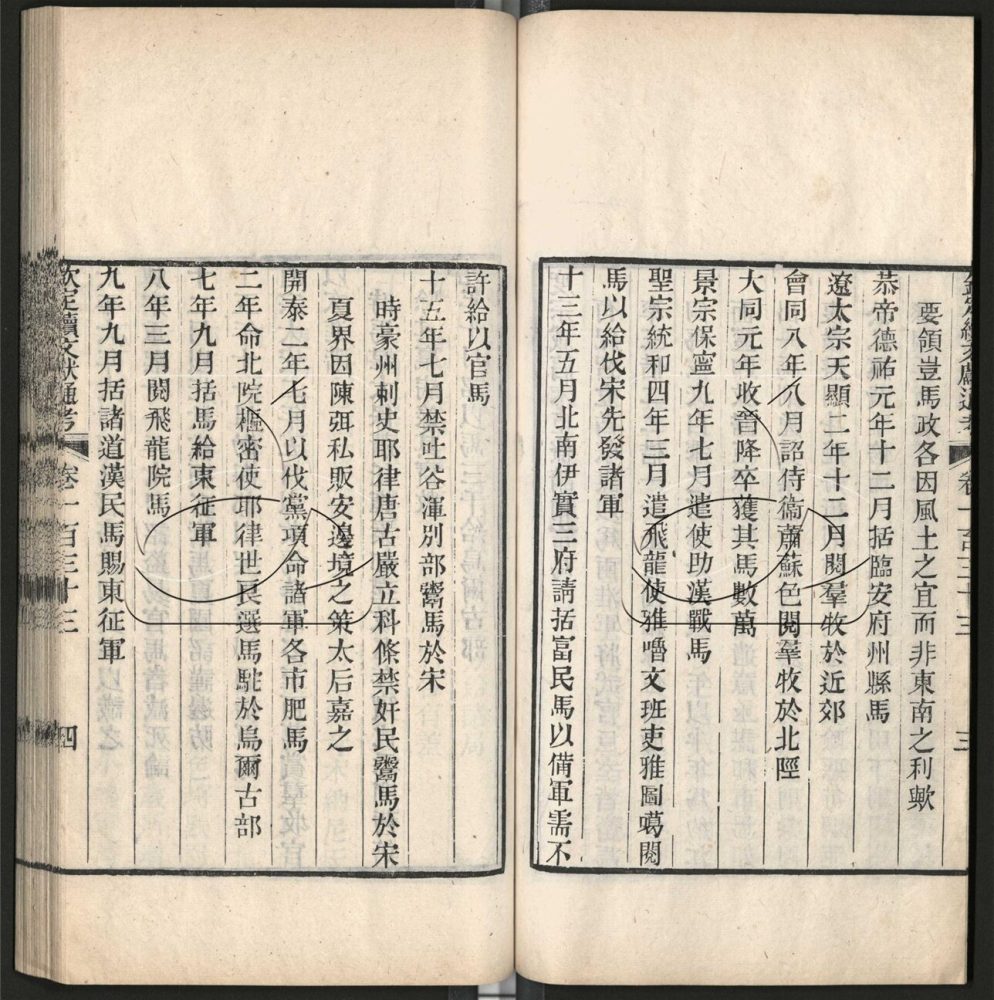 欽定續文獻通考　卷一百三十三　三
要領豈馬政各因風土之宜而非東南之利歟
恭帝德祐元年十二月括臨安府州縣馬
遼太宗天顯二年十二月閱羣牧於近郊
會同八年八月詔侍衞蕭蘇色閱羣牧於北陘
大同元年收晉降卒獲其馬數萬
景宗保寧九年七月遣使助漢戰馬
聖宗統和四年三月遣飛龍使雅嚕文班吏雅圖噶閱
馬以給伐宋先發諸軍
十三年五月北南伊實三府請括富民馬以備軍需不
許給以官馬
十五年七月禁吐谷渾別部鬻馬於宋
時豪州刺史耶律唐古嚴立科條禁奸民鬻馬於宋
夏界因陳弭私販安邊境之策太后嘉之
開泰二年七月以伐黨項命諸軍各市肥馬
二年命北院樞密使耶律世良選馬駝於烏爾古部
七年九月括馬給東征軍
八年三月閱飛龍院馬
九年九月括諸道漢民馬賜東征軍
欽定續文獻通考　卷一百三十三　四